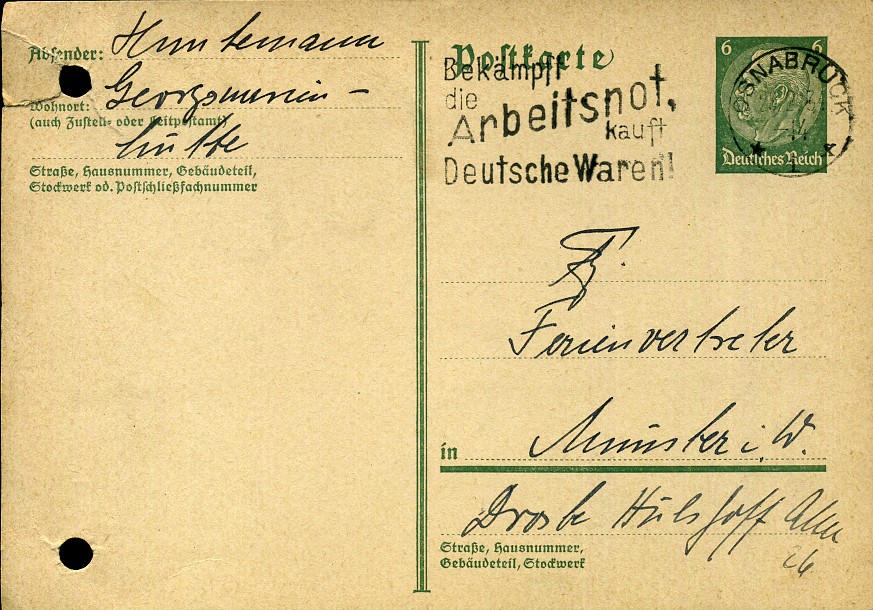 Absender: Huntemann
Wohnort: Georgsmarien-
(auch Zustell- oder Leitpostamt)
hütte
Straße, Hausnummer, Gebäudeteil,
Stockwerk od. Postschließfachnummer
Postkarte
Bekämpft
die
Arbeitsnot,
kauft
Deutsche Waren!
6 6
OSNABRÜCK
Deutsches Reich
Ferienvertreter
in Münster i. W.
Droste Hülshoff Allee
Straße, Hausnummer,
Gebäudeteil, Stockwerk